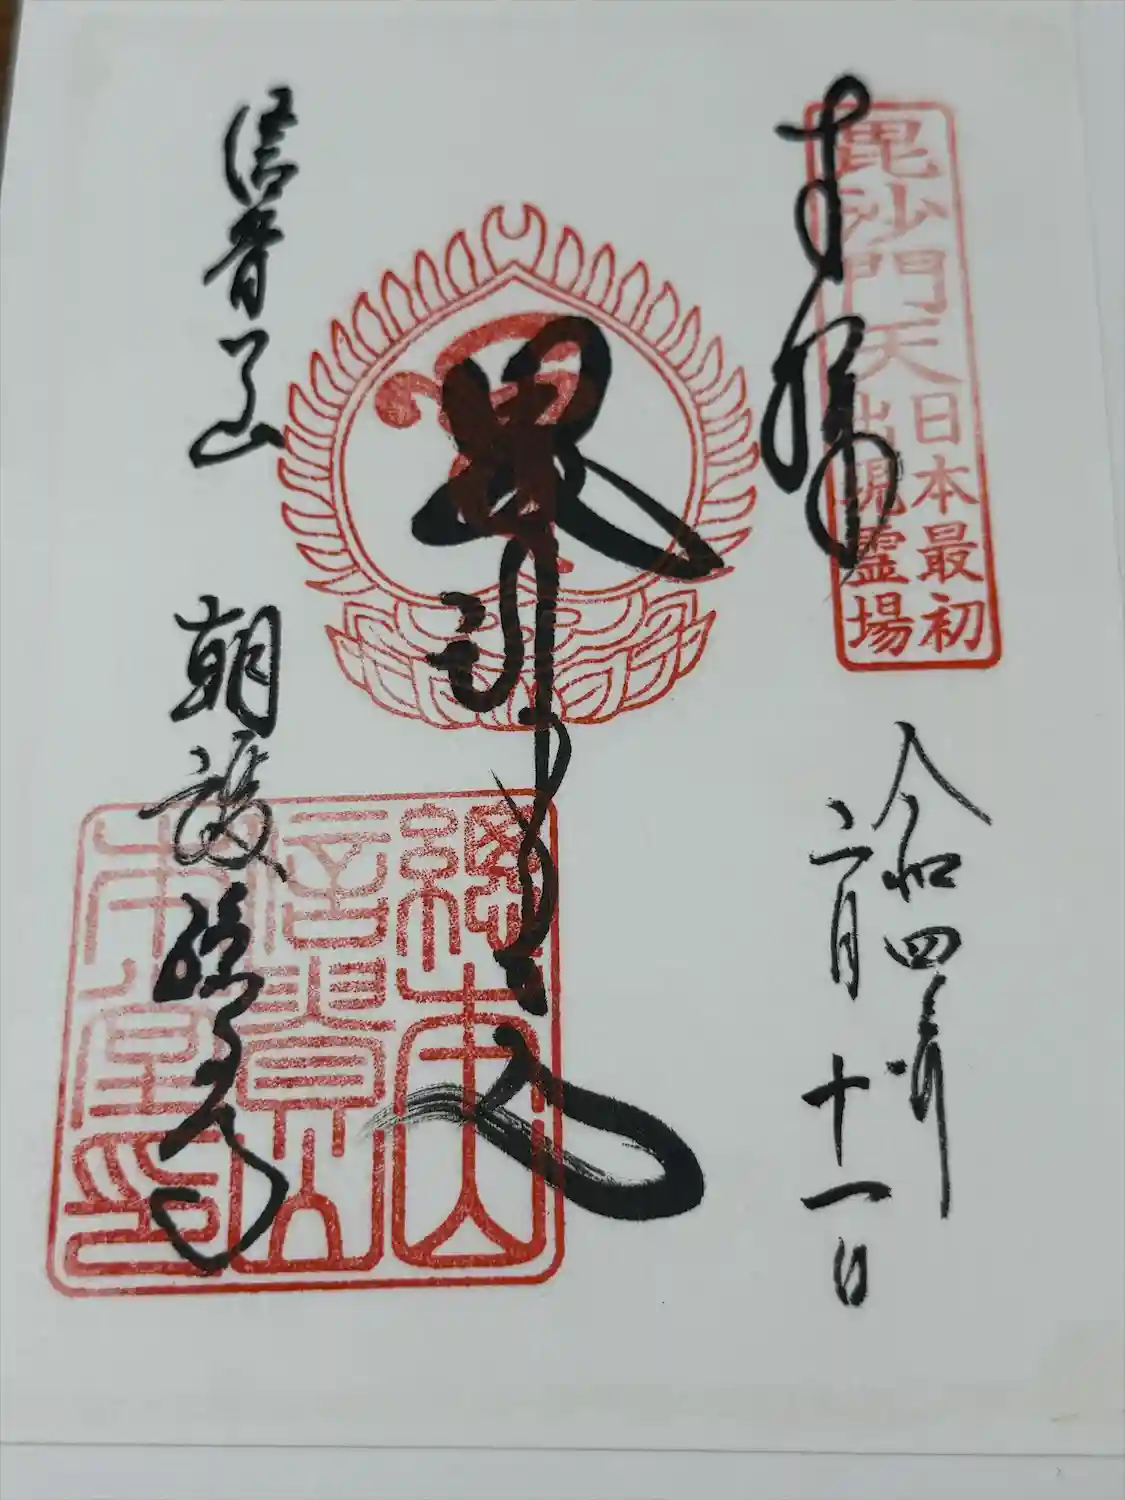 奉拝
毘沙門天
日本最初
出現霊場
令和四年
二月十一日
毘沙門天
總本山
信貴山
本堂印
信貴山
朝護孫子寺